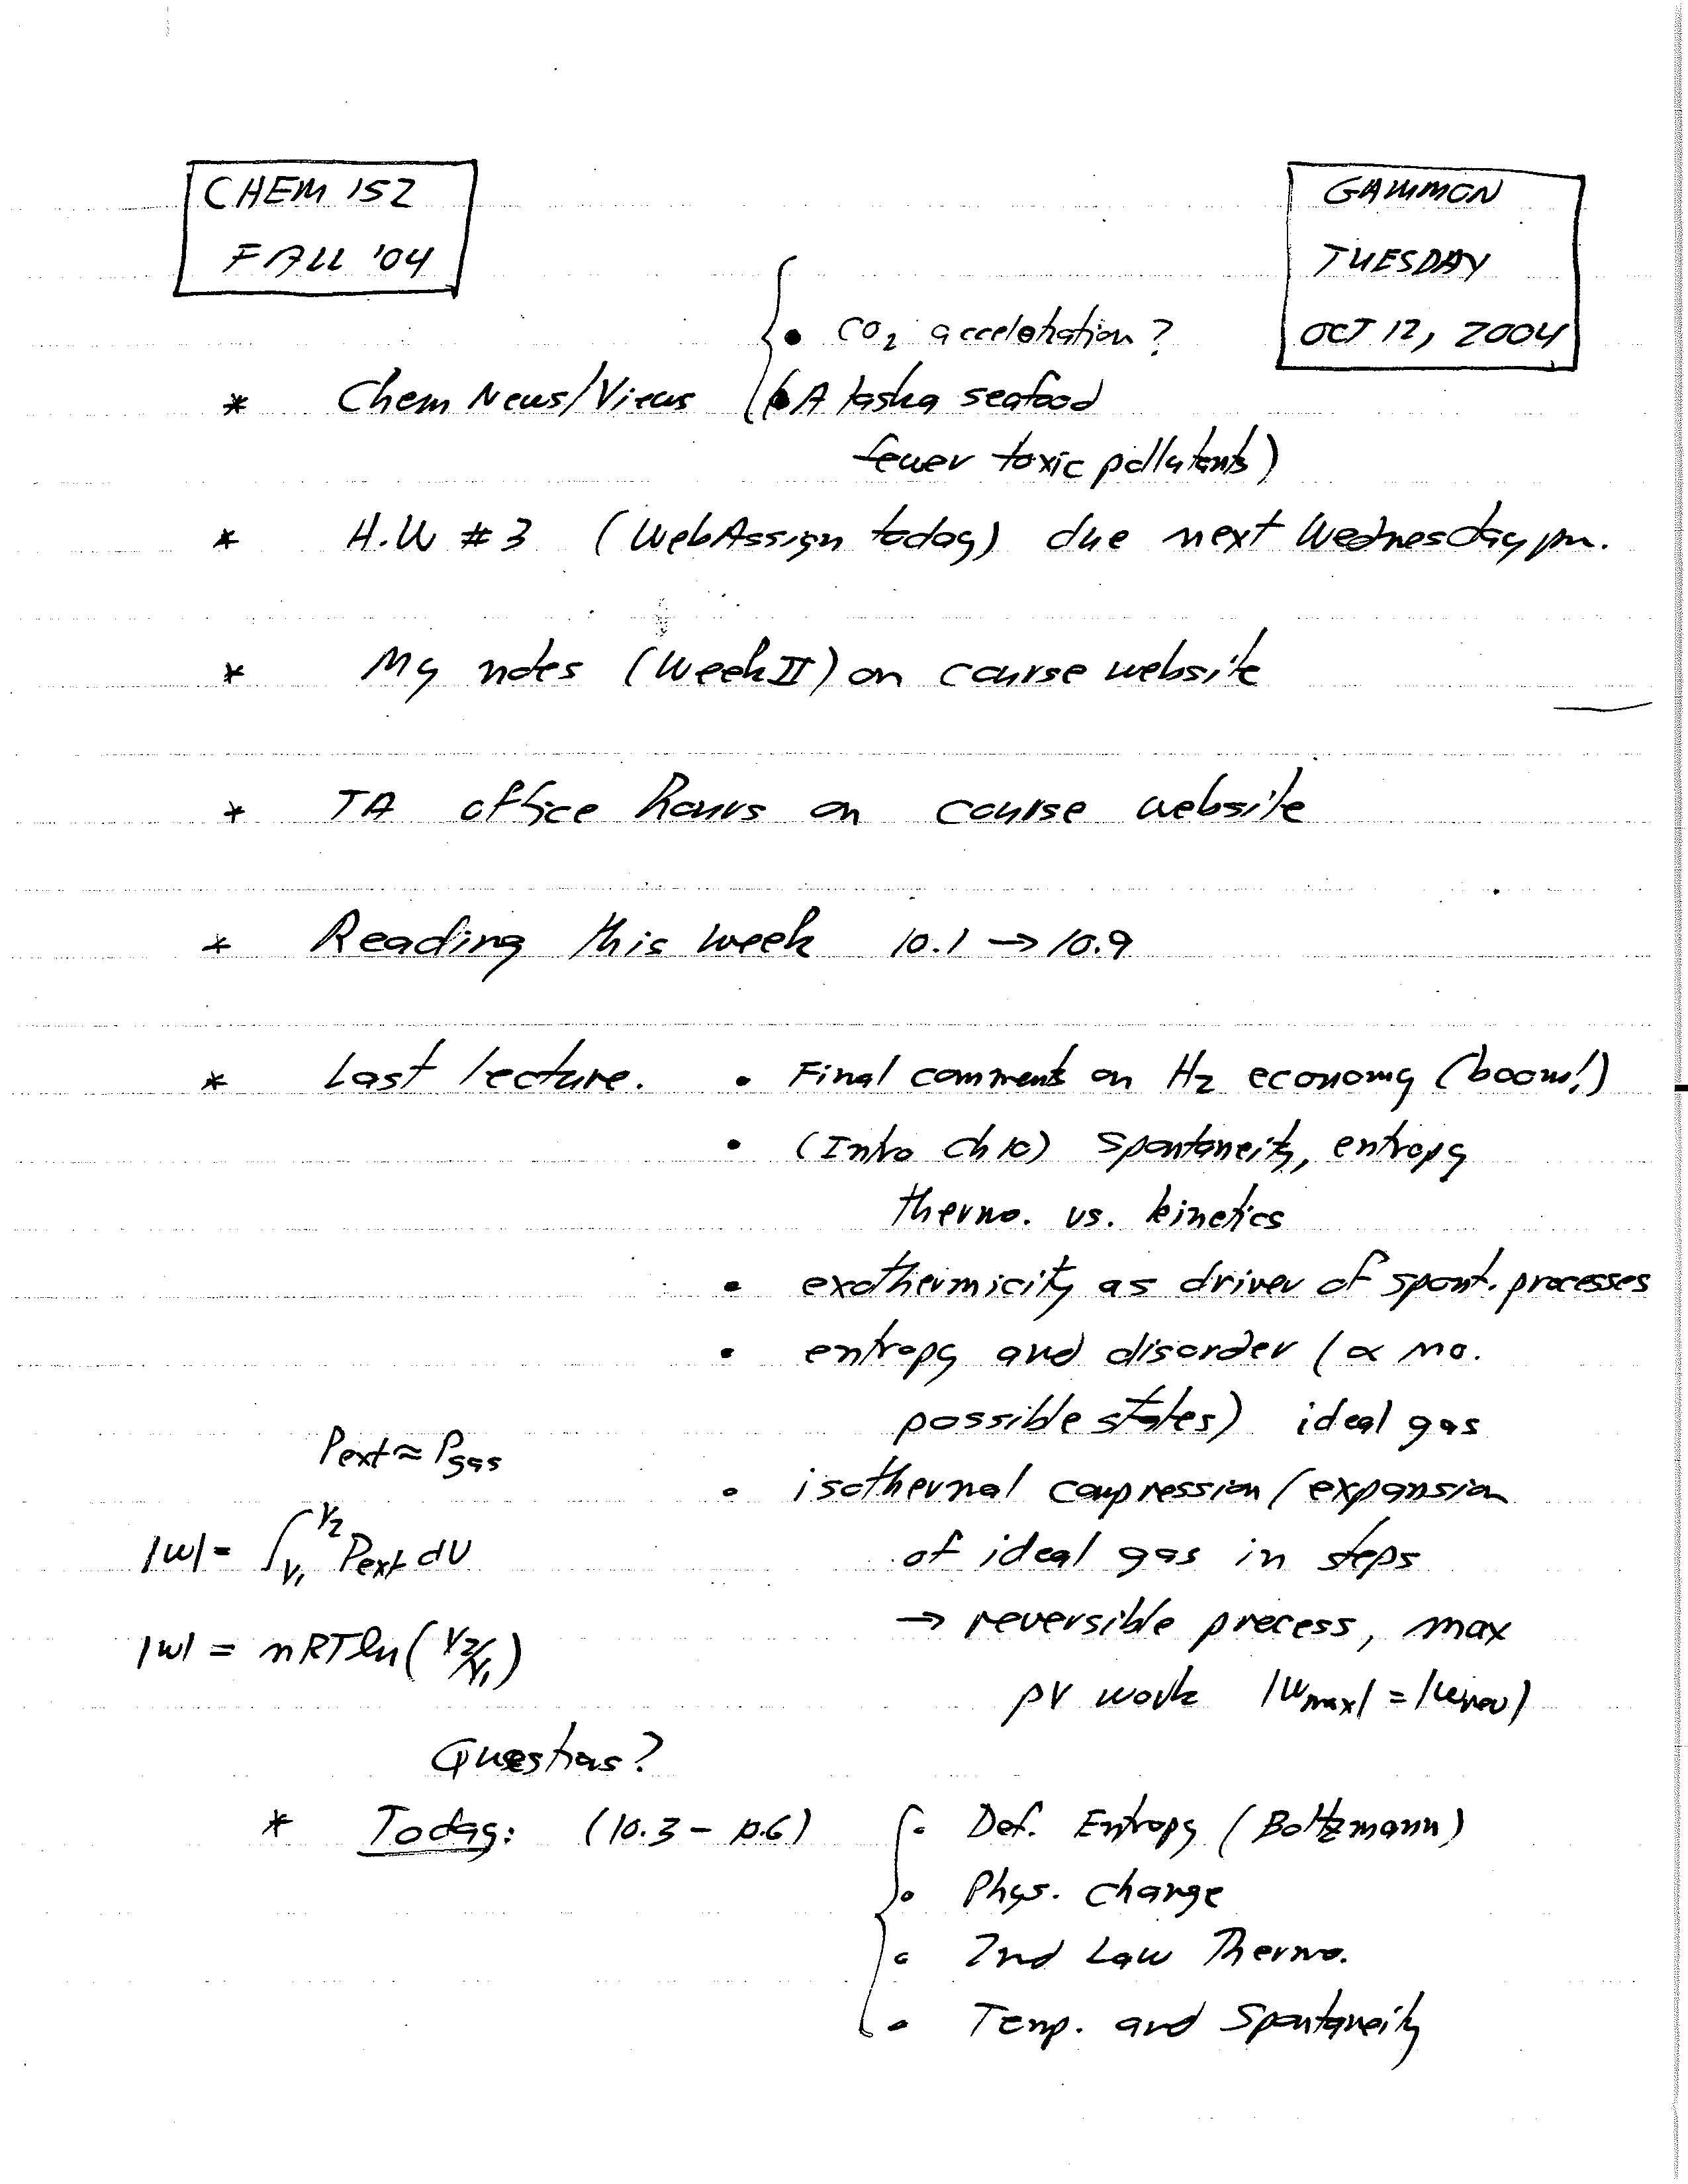 CHEM 152
FALL '04
GAMMON
TUESDAY
OCT 12, 2004
* Chem News/Views { • CO2 acceleration?
(• Alaska seafood
fewer toxic pollutants)
* H.W #3 (WebAssign today) due next Wednesday pm.
* My notes (Week II) on course website
* TA office hours on course website
* Reading this week 10.1 → 10.9
* Last lecture. • Final comments on H2 economy (boom!)
• (Intro Ch 10) Spontaneity, entropy
thermo. vs. kinetics
• exothermicity as driver of spont. processes
• entropy and disorder (∝ no.
possible states) ideal gas
• isothermal compression/expansion
of ideal gas in steps
→ reversible process, max
PV work |wmax| = |wrev|
Pext ≈ Pgas
|w| = ∫V1V2 Pext dV
|w| = nRT ln(V2/V1)
Questions?
* Today: (10.3 – 10.6) { • Def. Entropy (Boltzmann)
• Phys. Change
• 2nd Law Thermo.
• Temp. and Spontaneity